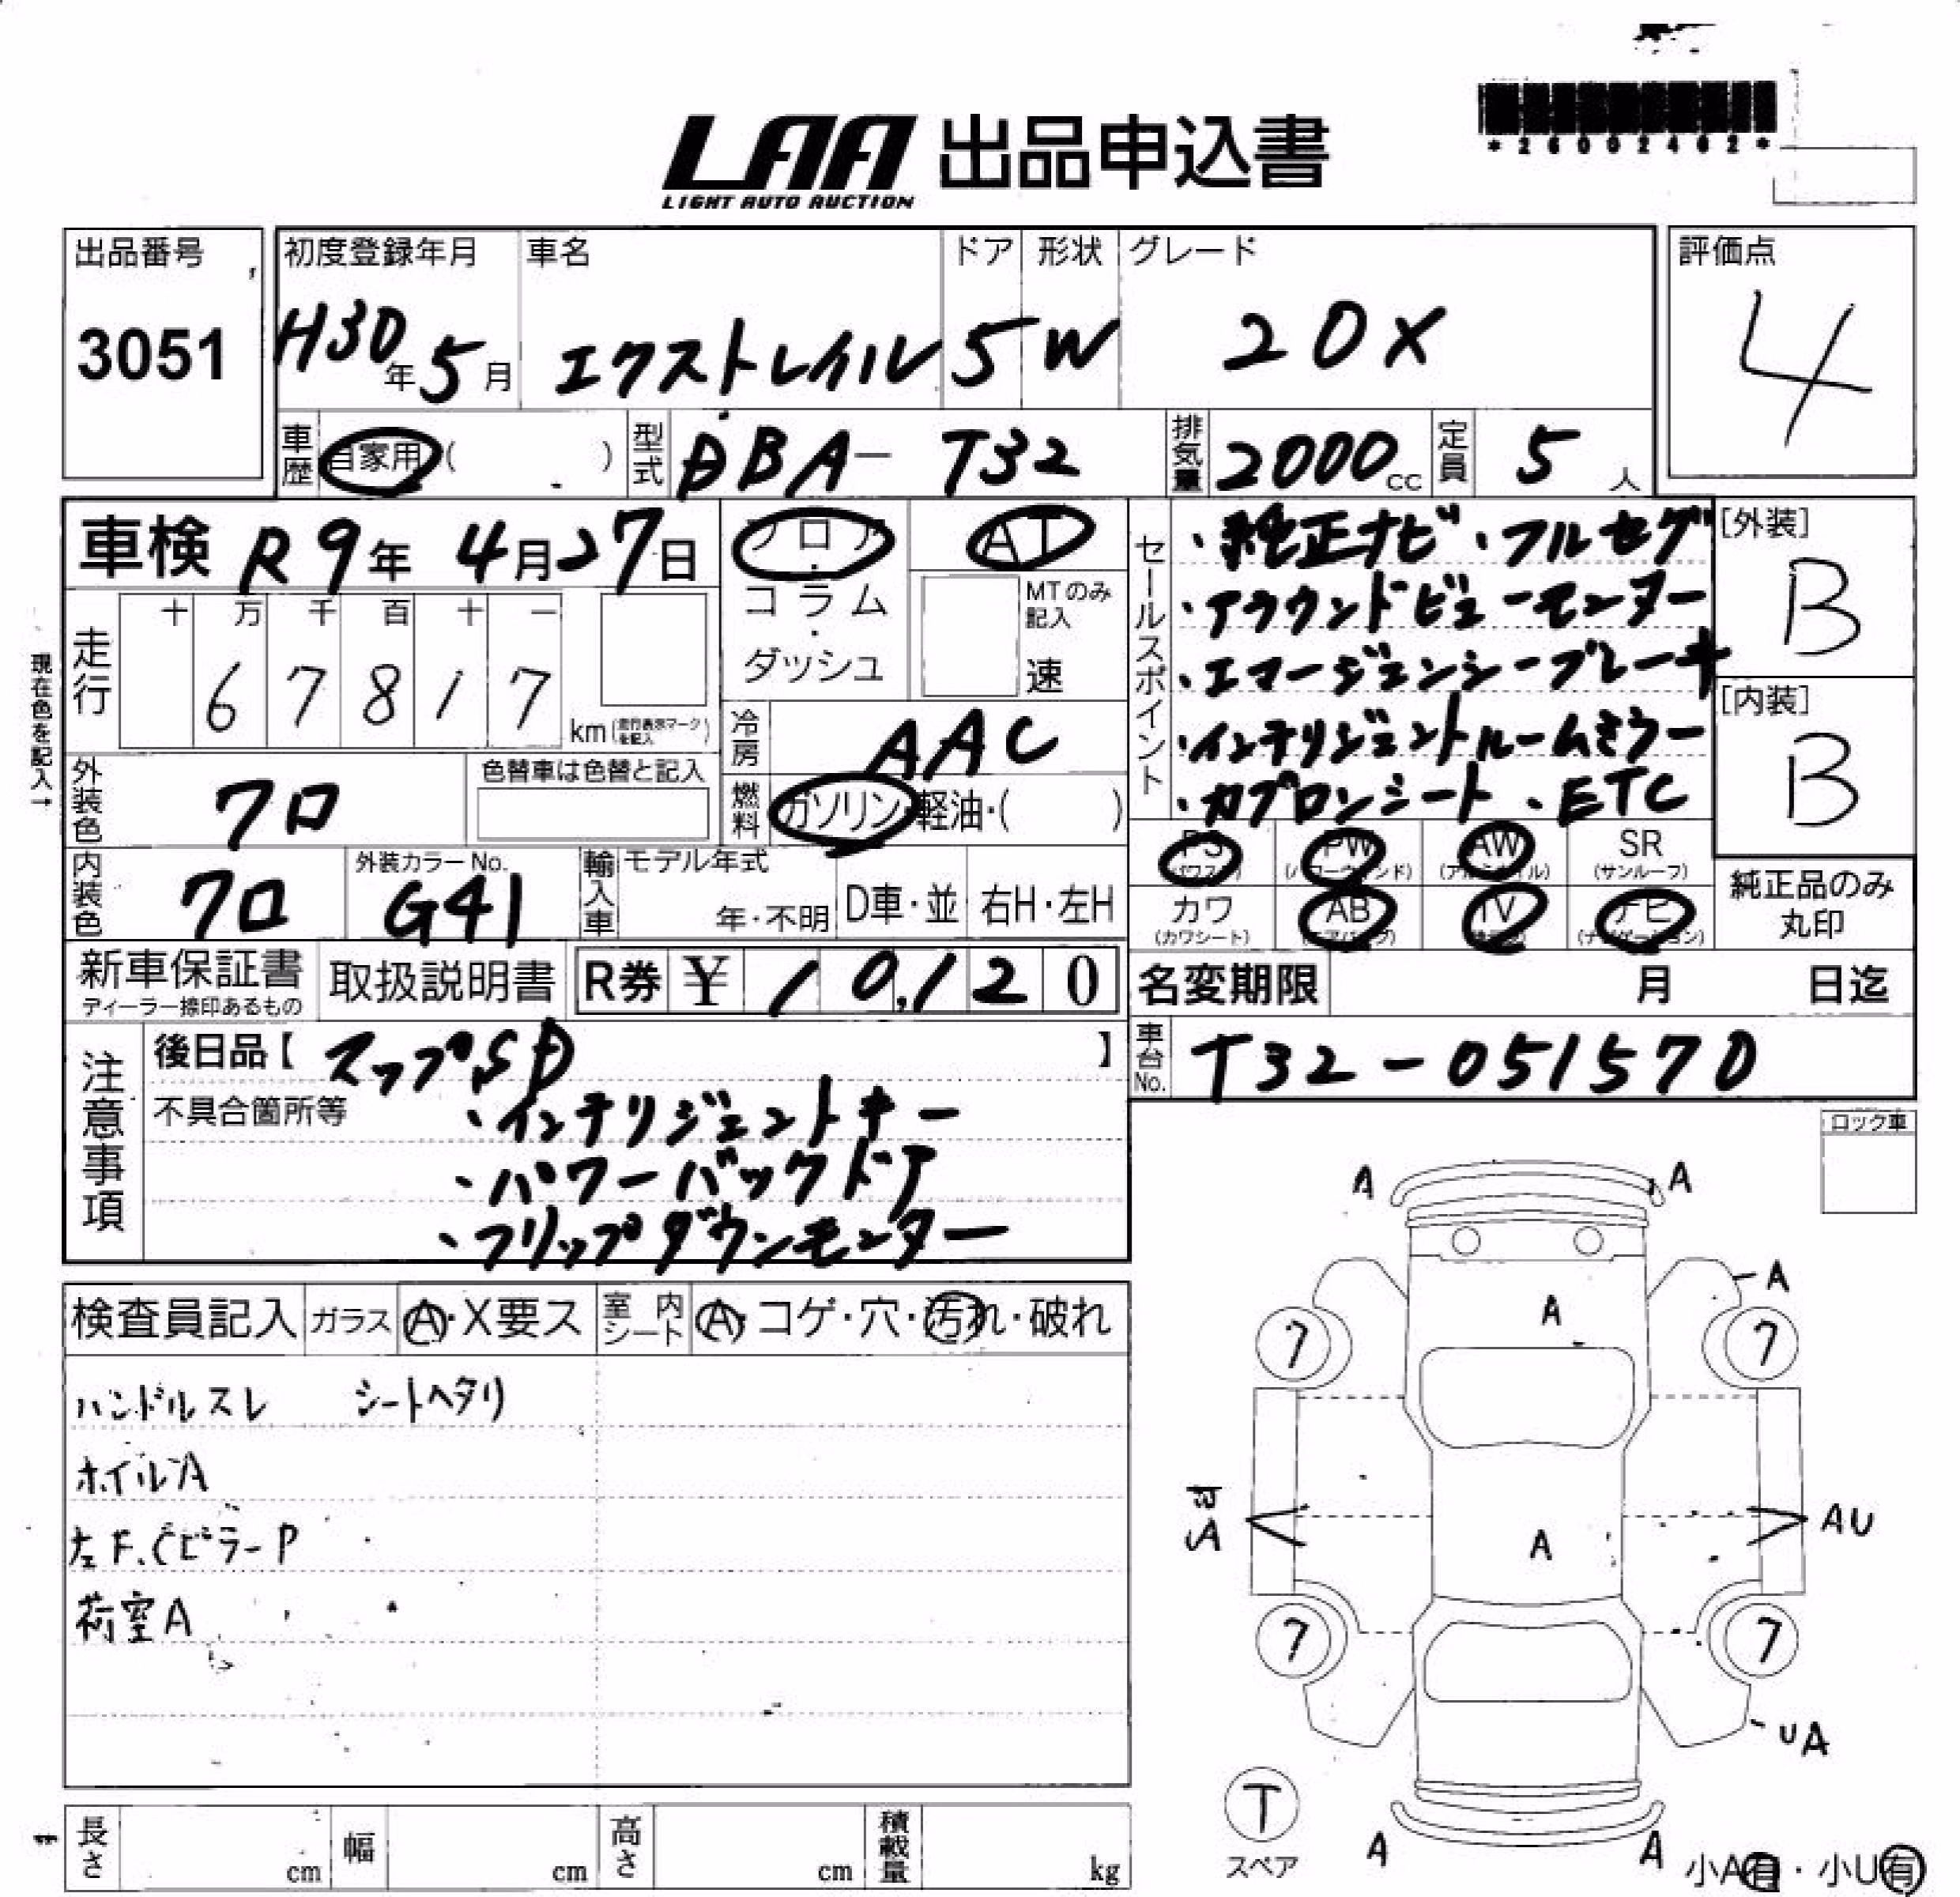 LAA 出品申込書
LIGHT AUTO AUCTION
*26092462*
出品番号
3051
初度登録年月 車名 ドア 形状 グレード
H30年5月 エクストレイル 5 W 20X
評価点
4
車歴 自家用 ( ) 型式 DBA-T32 排気量 2000cc 定員 5人
車検 R9年 4月27日
フロア・コラム・ダッシュ
AT
MTのみ記入
速
セールスポイント
・純正ナビ ・フルセグ
・アラウンドビューモニター
・エマージェンシーブレーキ
・インテリジェントルームミラー
・カプロンシート ・ETC
[外装]
B
[内装]
B
現在色を記入→
走行 十 万 千 百 十 一
67817
km (走行表示マークを記入)
冷房 AAC
外装色 クロ 色替車は色替と記入
燃料 ガソリン・軽油・( )
内装色 クロ 外装カラーNo. G41
輸入車 モデル年式 年・不明 D車・並 右H・左H
PS PW AW (アルミホイル) SR (サンルーフ)
カワ (カワシート) AB TV ナビ (ナビゲーション)
純正品のみ丸印
新車保証書 ディーラー捺印あるもの 取扱説明書 R券 ¥ 10,120
名変期限 月 日迄
注意事項
後日品【 スップSD 】
不具合箇所等
・インテリジェントキー
・パワーバックドア
・フリップダウンモニター
車台No. T32-051570
ロック車
検査員記入 ガラス A・X要ス 室内シート A・コゲ・穴・汚れ・破れ
ハンドルスレ シートヘタリ
ホイルA
左F.CピラーP
荷室A
A A
A
A
7 7
AU
A
7 7
UA
T
スペア
A A
小A有・小U有
長さ cm 幅 cm 高さ cm 積載量 kg